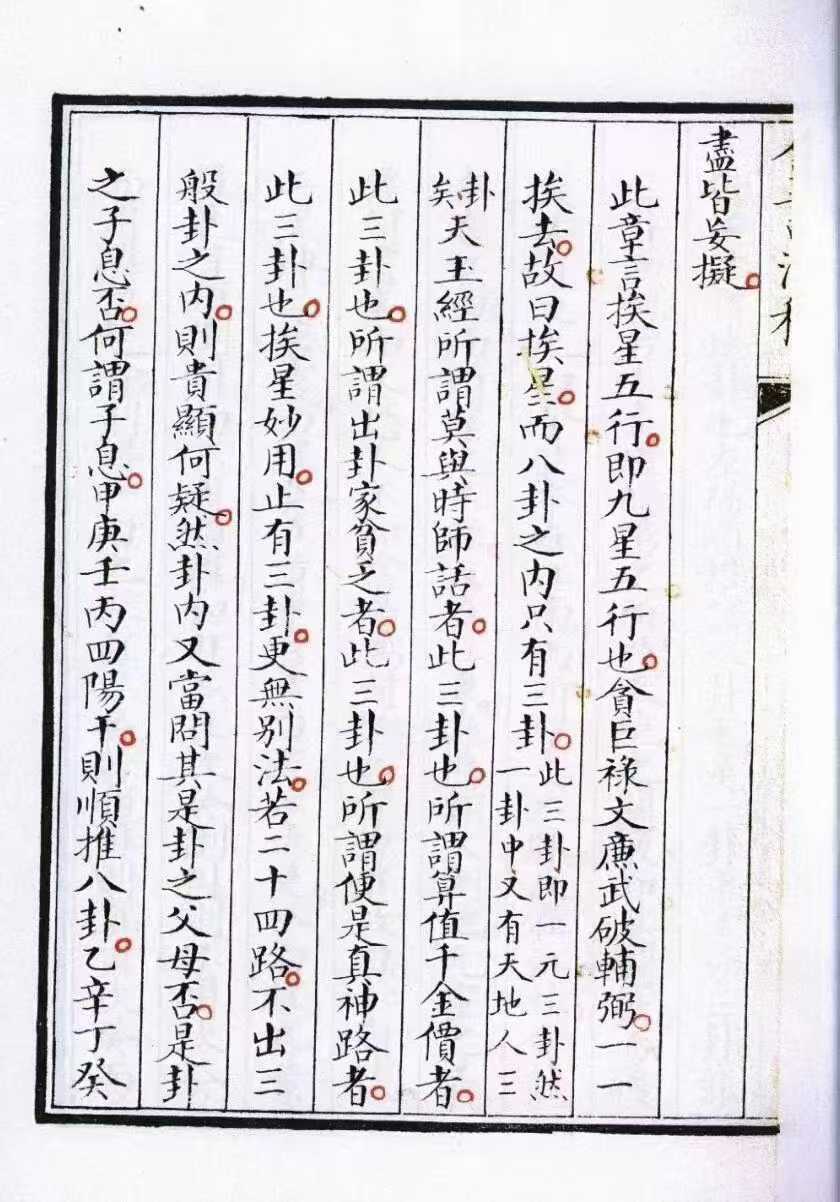 盡皆妄擬。
此章言挨星五行。即九星五行也。貪巨祿文廉武破輔弼。一一
挨去。故曰挨星。而八卦之内只有三卦。此三卦即一元三卦然一卦中又有天地人三
卦矣天玉經所謂莫與時師話者。此三卦也。所謂算值千金價者。
此三卦也。所謂出卦家貧乏者。此三卦也。所謂便是真神路者。
此三卦也。挨星妙用。止有三卦。更無別法。若二十四路。不出三
般卦之内。則貴顯何疑。然卦内又當問其是卦之父母否。是卦
之子息否。何謂子息。甲庚壬丙四陽干。則順推八卦。乙辛丁癸